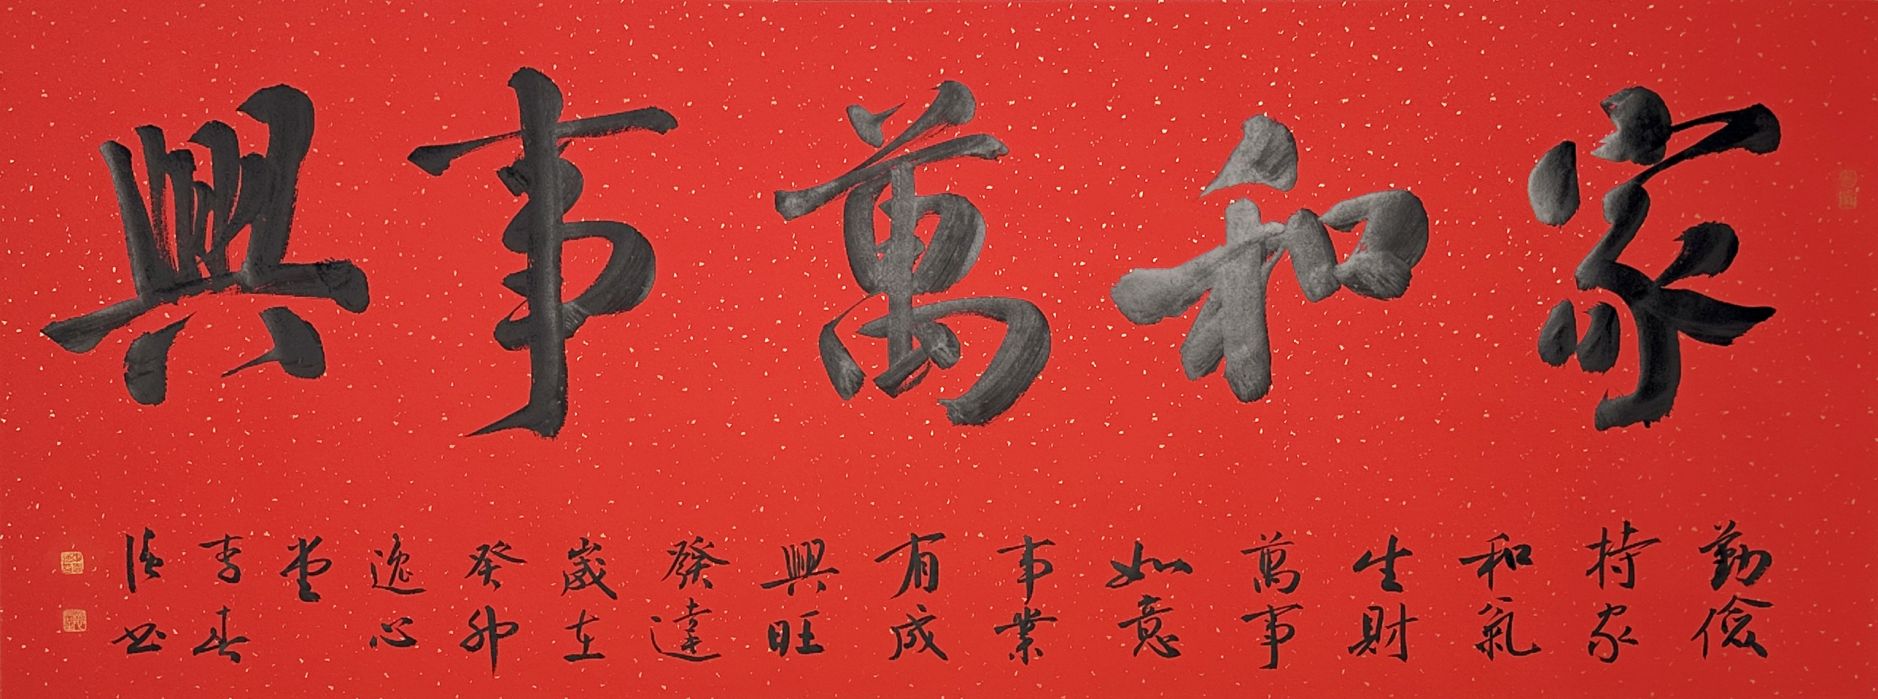 家和萬事興
勤儉
持家
和氣
生財
萬事
如意
事業
有成
興旺
發達
歲在
癸卯
逸心
堂
李春
法书